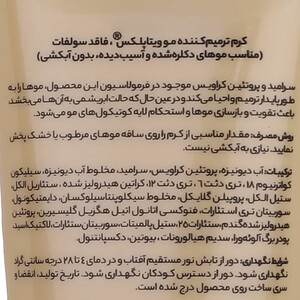 کرم ترمیم‌کننده مو ویتاپلکس®، فاقد سولفات
(مناسب موهای دکلره‌شده و آسیب‌دیده، بدون آبکشی)
سرامید و پروتئین کراویس موجود در فرمولاسیون این محصول، موها را به
طور پایدار ترمیم و احیا می‌کند و در عین حال که حالت ابریشمی به آن‌ها می‌بخشد
باعث تقویت و بازسازی موها و استحکام لایه کوتیکول‌های مو می‌شود.
روش مصرف: مقدار مناسبی از کرم را روی ساقه موهای مرطوب یا خشک پخش
نمایید. نیازی به آبکشی نیست.
ترکیبات: آب دیونیزه، پروتئین کراویس، سرامید، مخلوط آب دیونیزه، سیلیکون
کواترنیوم ۱۸، تری دث ۶، تری دث ۱۲، کراتین هیدرولیز شده، ستئاریل الکل،
ستیل الکل، پروپیلن گلایکل، مخلوط سیکلوپنتاسیلوکسان، دایمتیکونول،
سوربیتان تری استئارات، فنوکسی اتانول، اتیل هگزیل گلیسیرین، پروتئین
هیدرولیز شده گندم، ستئارت ۲۵، ستیل پالمیتات، سوربیتان ستئارات، لاکتیک اسید
پودر برگ آلوئه‌ورا، سدیم هیالورونات، بیوتین، دکسپانتنول.
شرایط نگهداری: دور از تابش نور مستقیم آفتاب و در دمای ۴ تا ۲۸ درجه سانتی گراد
نگهداری شود. دور از دسترس کودکان نگهداری شود. تاریخ تولید، انقضا و
سری ساخت روی محصول درج شده است.